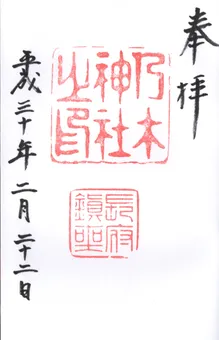 奉拝
乃木
神社
之印
長府
鎮聖
平成三十年二月二十二日